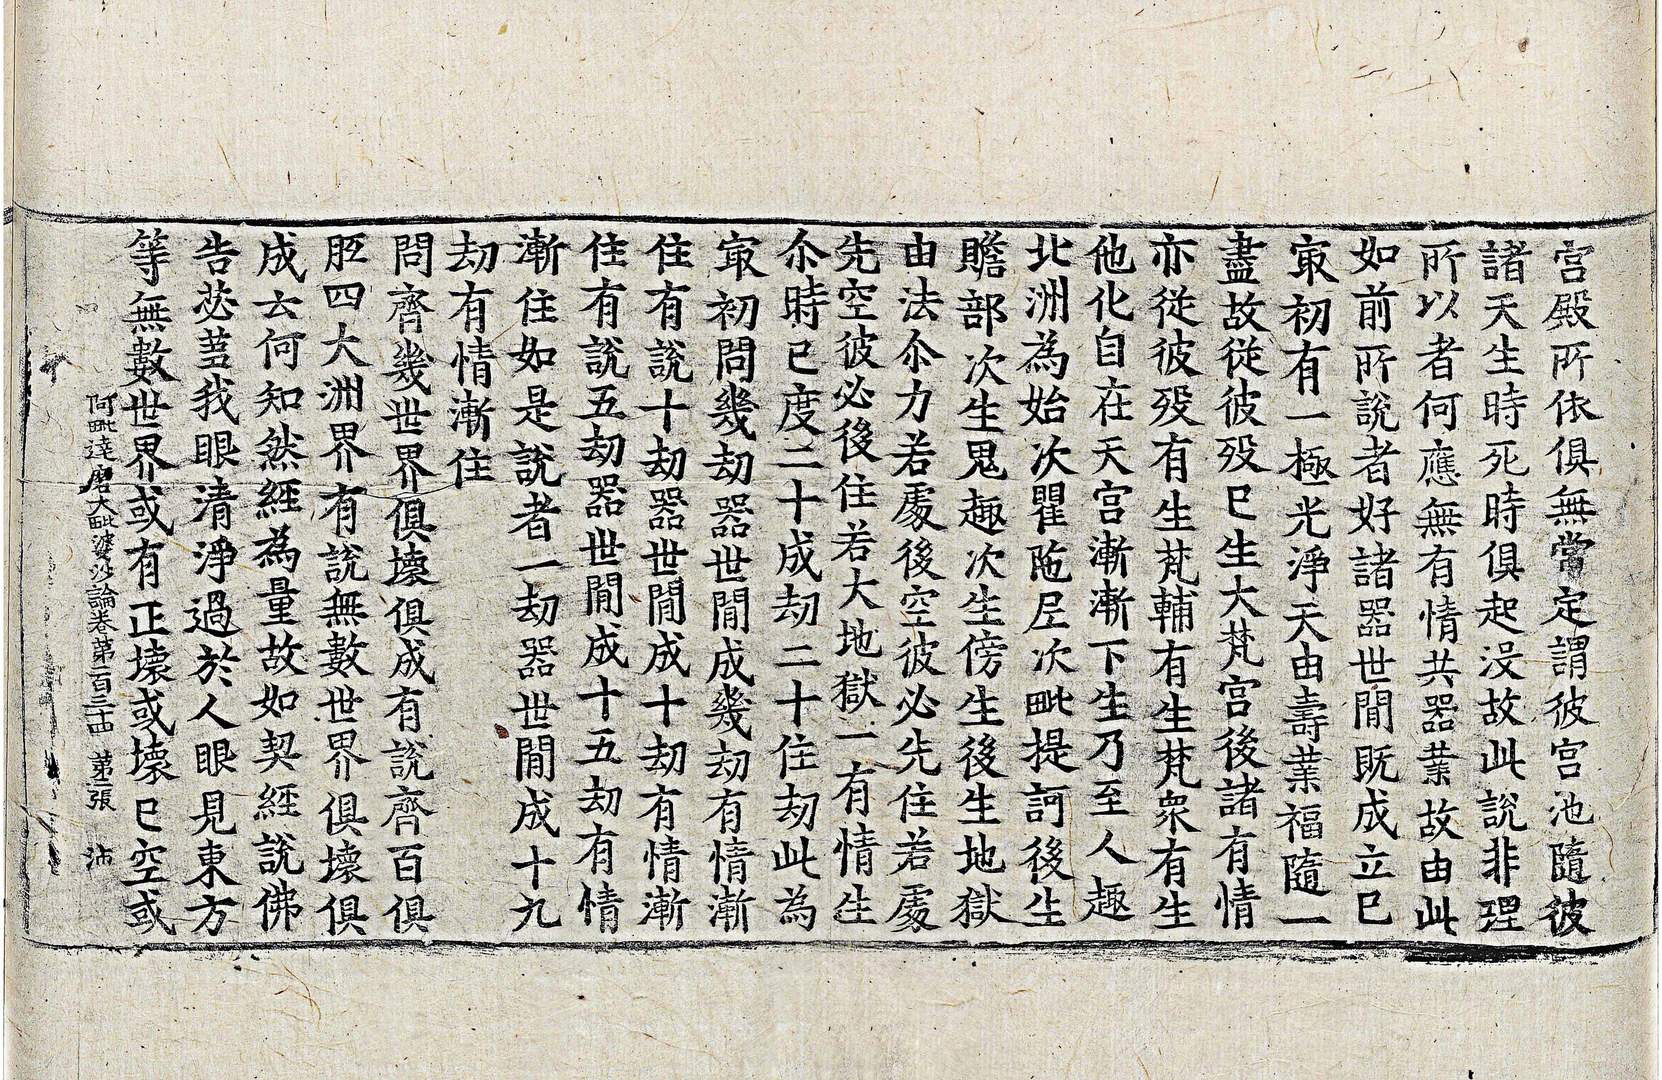 宮殿所依俱無常定謂彼宮池隨彼
諸天生時死時俱起没故此說非理
所以者何應無有情共器業故由此
如前所說者好諸器世間既成立已
㝡初有一極光淨天由壽業福隨一
盡故從彼歿已生大梵宮後諸有情
亦從彼歿有生梵輔有生梵衆有生
他化自在天宮漸漸下生乃至人趣
北洲為始次瞿陁尼次毗提訶後生
贍部次生鬼趣次生傍生後生地獄
由法尒力若處後空彼必先住若處
先空彼必後住若大地獄一有情生
尒時已度二十成劫二十住劫此為
㝡初問幾劫器世間成幾劫有情漸
住有說十劫器世間成十劫有情漸
住有說五劫器世間成十五劫有情
漸住如是說者一劫器世間成十九
劫有情漸住
問齊幾世界俱壞俱成有說齊百俱
胝四大洲界有說無數世界俱壞俱
成云何知然經為量故如契經說佛
告苾蒭我眼清淨過於人眼見東方
等無數世界或有正壞或壞已空或
阿毗達磨大毗婆沙論卷第一百三十四 第三張 沛